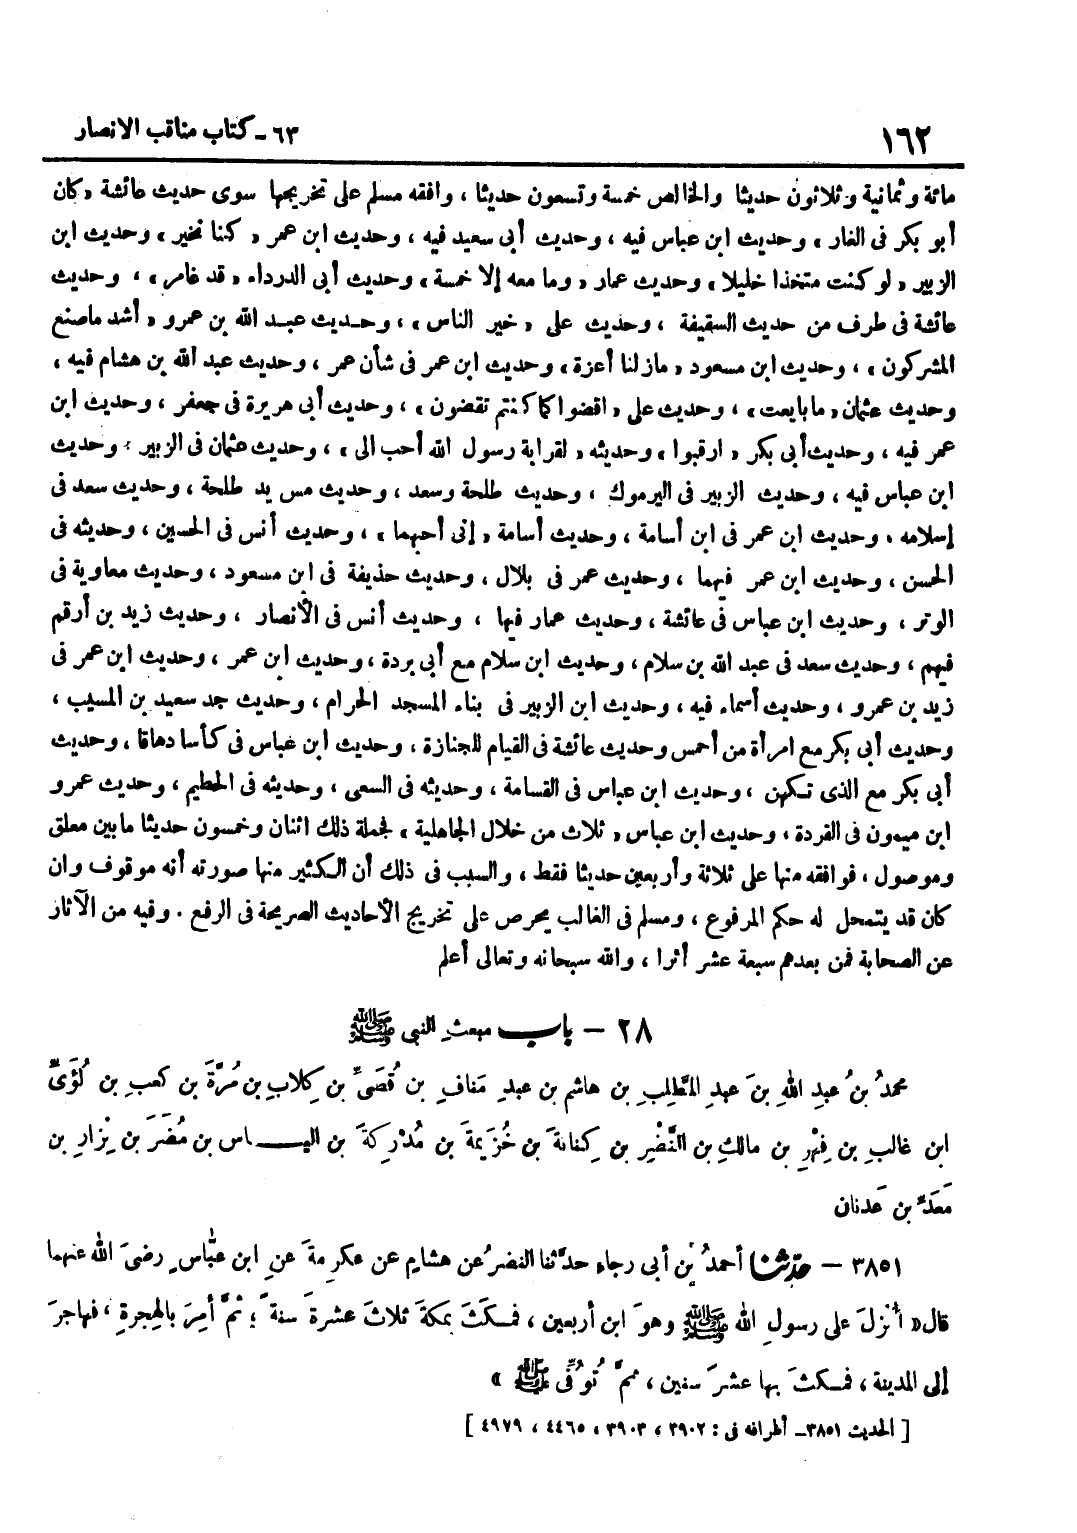 ١٦٢ ٦٣ - كتاب مناقب الانصار
مائة وثمانية وثلاثون حديثا والخالص خمسة وتسعون حديثا ، وافقه مسلم على تخريجها سوى حديث عائشة « كان
أبو بكر فى الغار » وحديث ابن عباس فيه ، وحديث أبى سعيد فيه ، وحديث ابن عمر « كنا نخير » وحديث ابن
الزبير « لو كنت متخذا خليلا » وحديث عمار « وما معه إلا خمسة » وحديث أبى الدرداء « قد غامر » ، وحديث
عائشة فى طرف من حديث السقيفة ، وحديث على « خير الناس » ، وحديث عبد الله بن عمرو « أشد ماصنع
المشركون » ، وحديث ابن مسعود « مازلنا أعزة » وحديث ابن عمر فى شأن عمر ، وحديث عبد الله بن هشام فيه ،
وحديث عثمان « مابايعت » ، وحديث على « اقضوا كما كنتم تقضون » ، وحديث أبى هريرة فى جعفر ، وحديث ابن
عمر فيه ، وحديث أبى بكر « ارقبوا » وحديثه « لقرابة رسول الله أحب الى » ، وحديث عثمان فى الزبير ، وحديث
ابن عباس فيه ، وحديث الزبير فى اليرموك ، وحديث طلحة وسعد ، وحديث مس يد طلحة ، وحديث سعد فى
إسلامه ، وحديث ابن عمر فى ابن أسامة ، وحديث أسامة « إنى أحبهما » ، وحديث أنس فى الحسين ، وحديثه فى
الحسن ، وحديث ابن عمر فيهما ، وحديث عمر فى بلال ، وحديث حذيفة فى ابن مسعود ، وحديث معاوية فى
الوتر ، وحديث ابن عباس فى عائشة ، وحديث عمار فيها ، وحديث أنس فى الأنصار ، وحديث زيد بن أرقم
فيهم ، وحديث سعد فى عبد الله بن سلام ، وحديث ابن سلام مع أبى بردة ، وحديث ابن عمر ، وحديث ابن عمر فى
زيد بن عمرو ، وحديث أسماء فيه ، وحديث ابن الزبير فى بناء المسجد الحرام ، وحديث جد سعيد بن المسيب ،
وحديث أبى بكر مع امرأة من أحمس وحديث عائشة فى القيام للجنازة ، وحديث ابن عباس فى كأسا دهاقا ، وحديث
أبى بكر مع الذى تكهن ، وحديث ابن عباس فى القسامة ، وحديثه فى السعى ، وحديثه فى الحطيم ، وحديث عمرو
ابن ميمون فى القردة ، وحديث ابن عباس « ثلاث من خلال الجاهلية » فجملة ذلك اثنان وخمسون حديثا مابين معلق
وموصول ، فوافقه منها على ثلاثة وأربعين حديثا فقط ، والسبب فى ذلك أن الكثير منها صورته أنه موقوف وان
كان قد يتمحل له حكم المرفوع ، ومسلم فى الغالب يحرص على تخريج الأحاديث الصريحة فى الرفع . وفيه من الآثار
عن الصحابة فمن بعدهم سبعة عشر أثرا ، والله سبحانه وتعالى أعلم
٢٨ - باب مبعث النبى ﷺ
محمدُ بنُ عبدِ اللهِ بنَ عبدِ المطَّلبِ بن هاشمِ بن عبدِ مَنافِ بن قُصَىِّ بن كِلابِ بن مُرَّةَ بن كعبِ بن لُؤَىِّ
ابن غالبِ بن فِهْرِ بن مالكِ بن النَّضْرِ بن كِنانةَ بن خُزَيمةَ بن مُدْرِكةَ بن اليـــاس بن مُضَرَ بن نِزارِ بن
مَعَدِّ بن عَدنان
٣٨٥١ - حدّثنا أحمدُ بن أبى رجاءٍ حدَّثنا النضرُ عن هشامٍ عن عكرمةَ عنِ ابن عبَّاسٍ رضىَ اللهُ عنهما
قال « أُنْزِلَ على رسولِ الله ﷺ وهوَ ابن أربعين ، فمكثَ بمكةَ ثلاثَ عشْرةَ سنةً ؛ ثمَّ أُمِرَ بالهجرةِ ، فهاجرَ
إلى المدينة ، فمكثَ بها عشرَ سنين ، ثمَّ تُوُفِّى ﷺ »
[ الحديث ٣٨٥١- أطرافه فى : ٣٩٠٢ ، ٣٩٠٣ ، ٤٤٦٥ ، ٤٩٧٩ ]